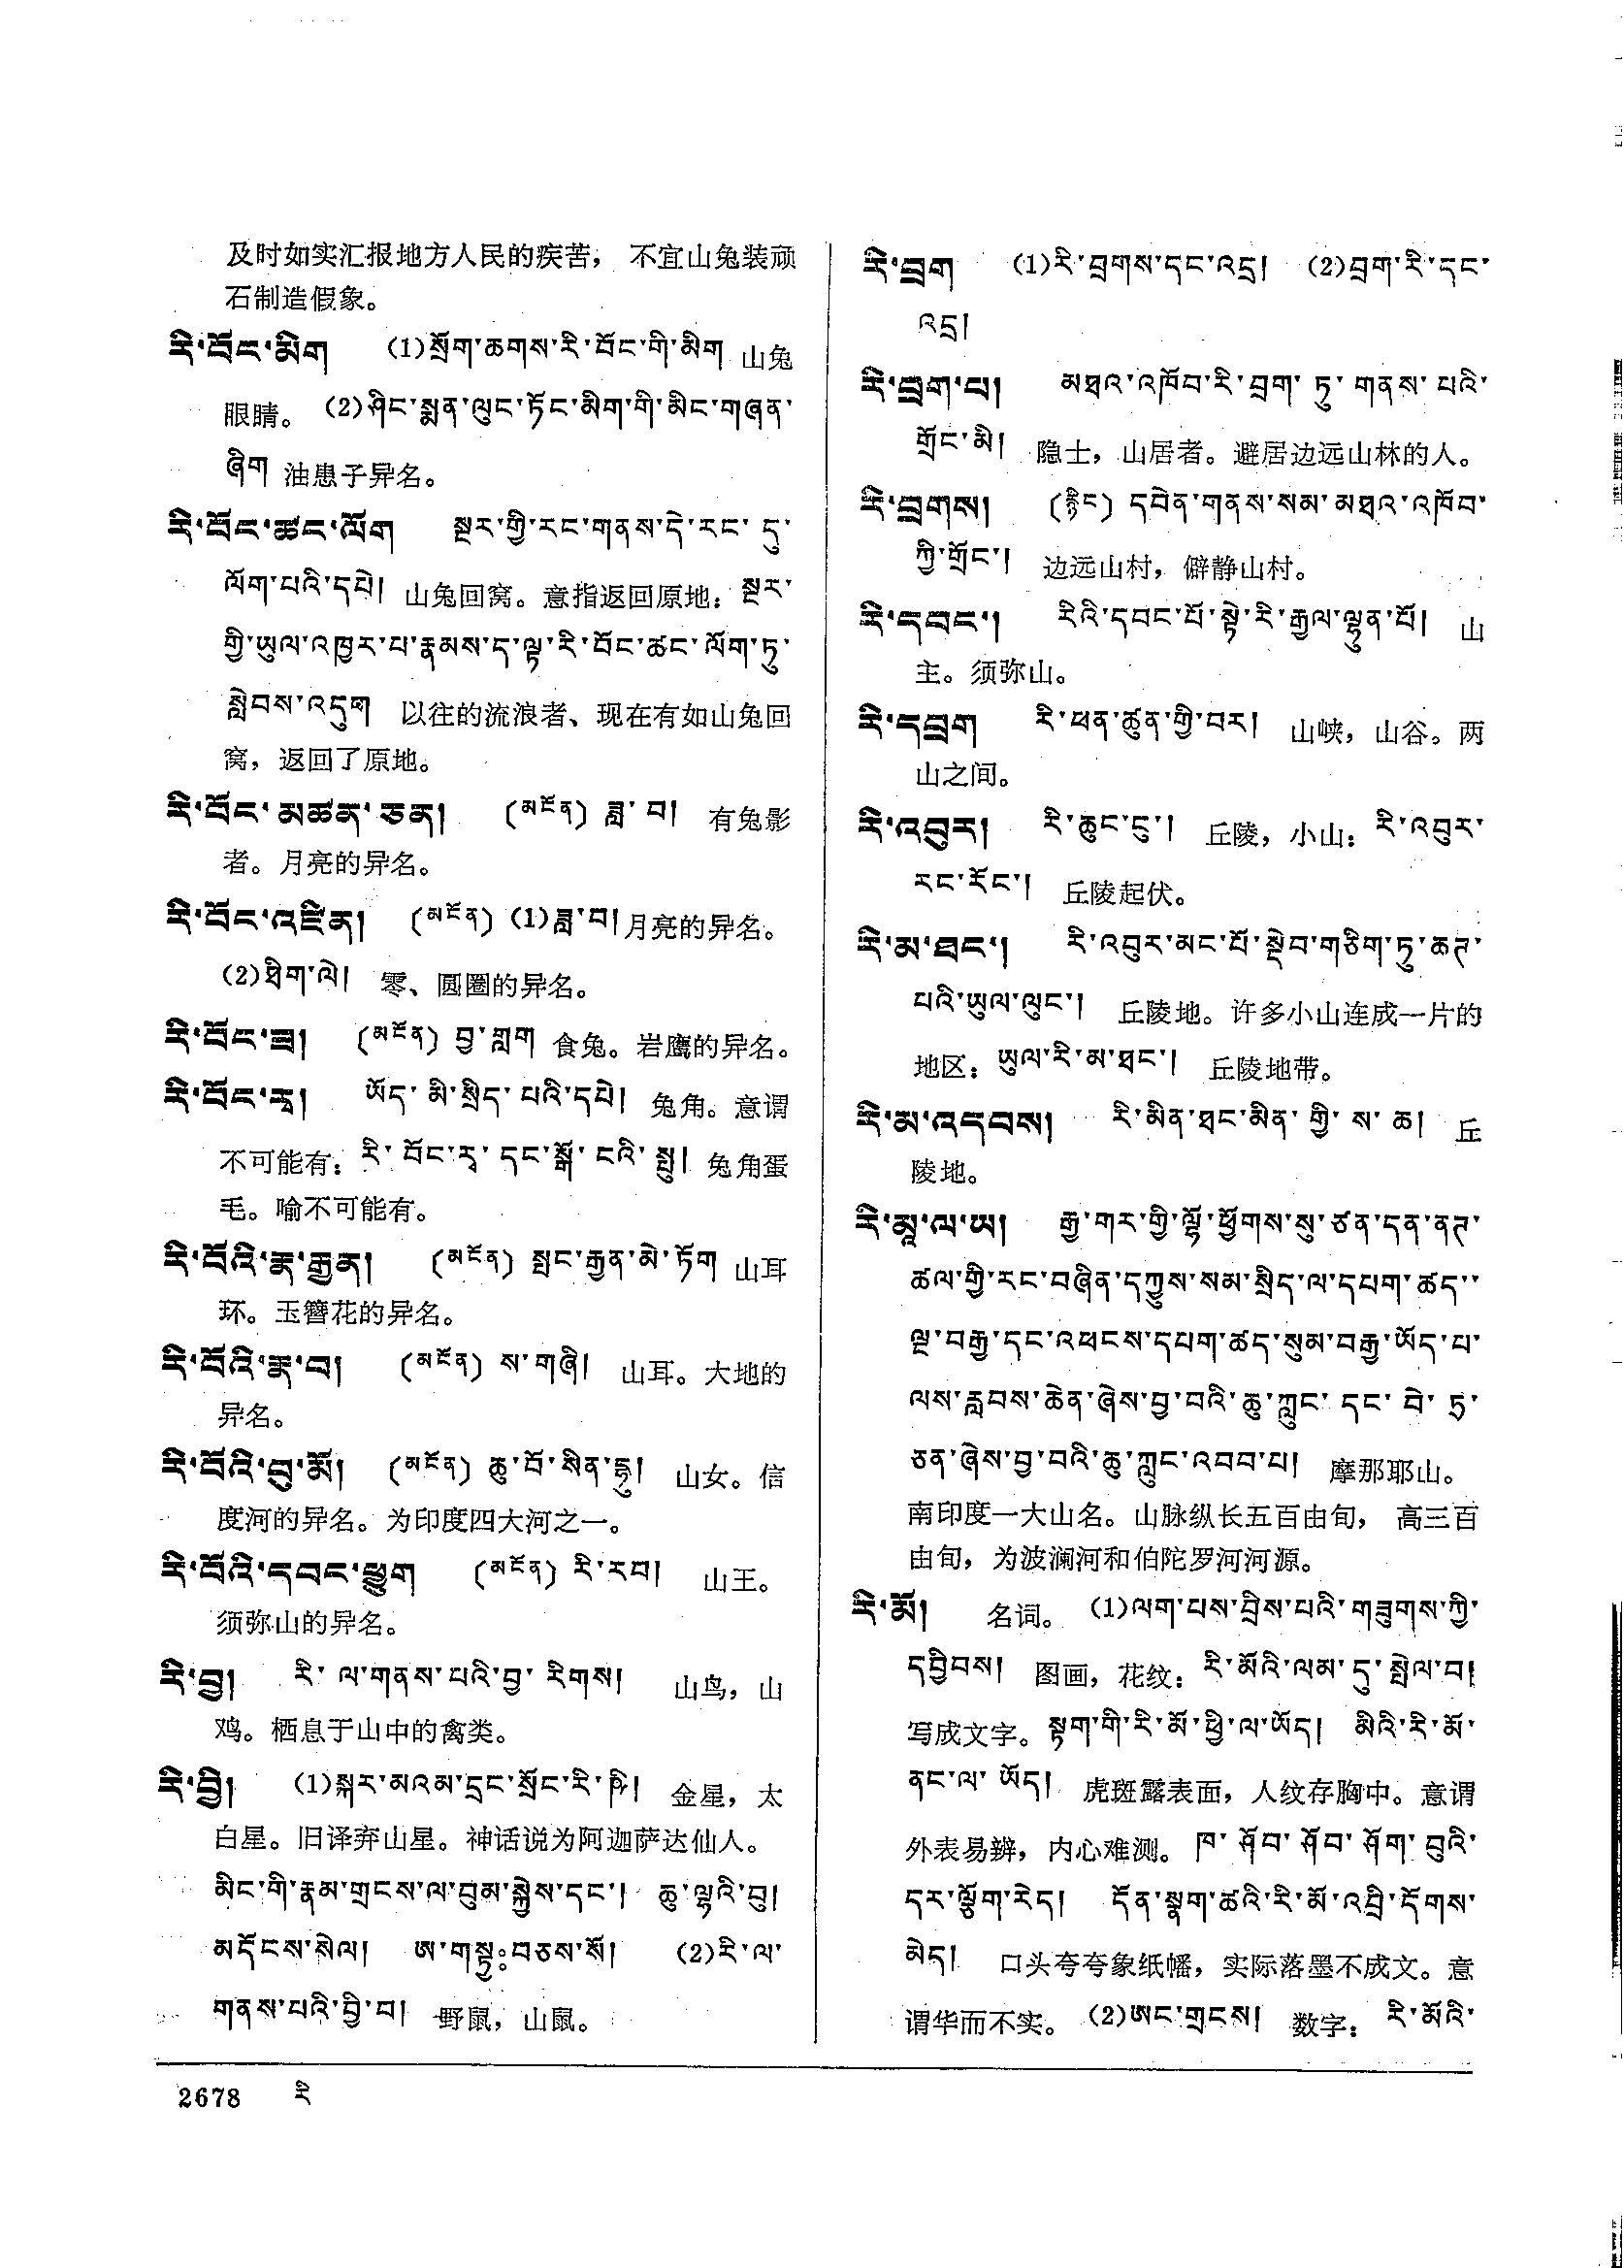 及时如实汇报地方人民的疾苦， 不宜山兔装顽
石制造假象。
རི་བོང་མིག (1)སྲོག་ཆགས་རི་བོང་གི་མིག 山兔
眼睛。 (2)ཤིང་སྨན་ལུང་ཏོང་མིག་གི་མིང་གཞན་
ཞིག 油患子异名。
རི་བོང་ཚང་ལོག སྔར་གྱི་རང་གནས་དེ་རང་ དུ་
ལོག་པའི་དཔེ། 山兔回窝。意指返回原地： སྔར་
གྱི་ཡུལ་འཁྱར་པ་རྣམས་ད་ལྟ་རི་བོང་ཚང་ལོག་ཏུ་
སླེབས་འདུག 以往的流浪者、现在有如山兔回
窝，返回了原地。
རི་བོང་ མཚན་ ཅན། (མངོན) ཟླ་ བ། 有兔影
者。月亮的异名。
རི་བོང་འཛིན། (མངོན) (1)ཟླ་བ། 月亮的异名。
(2)ཐིག་ལེ། 零、圆圈的异名。
རི་བོང་ཟ། (མངོན) བྱ་གླག 食兔。岩鹰的异名。
རི་བོང་རྭ། ཡོད་ མི་སྲིད་ པའི་དཔེ། 兔角。意谓
不可能有： རི་ བོང་རྭ་ དང་སྒོ་ ངའི་ སྤུ། 兔角蛋
毛。喻不可能有。
རི་བོའི་རྣ་རྒྱན། (མངོན) སྤང་རྒྱན་མེ་ཏོག 山耳
环。玉簪花的异名。
རི་བོའི་རྣ་བ། (མངོན) ས་གཞི། 山耳。大地的
异名。
རི་བོའི་བུ་མོ། (མངོན) ཆུ་བོ་སིན་དྷུ། 山女。信
度河的异名。为印度四大河之一。
རི་བོའི་དབང་ཕྱུག (མངོན) རི་རབ། 山王。
须弥山的异名。
རི་བྱ། རི་ ལ་གནས་པའི་བྱ་ རིགས། 山鸟，山
鸡。栖息于山中的禽类。
རི་བྱི། (1)སྐར་མའམ་དྲང་སྲོང་རི་ཥི། 金星，太
白星。旧译弃山星。神话说为阿迦萨达仙人。
མིང་གི་རྣམ་གྲངས་ལ་བུམ་སྐྱེས་དང་། ཆུ་ལྷའི་བུ།
མདོངས་སེལ། ཨ་གསྟྱ༔བཅས་སོ། (2)རི་ལ་
གནས་པའི་བྱི་བ། 野鼠，山鼠。
རི་བྲག (1)རི་བྲགས་དང་འདྲ། (2)བྲག་རི་དང་
འདྲ།
རི་བྲག་པ། མཐའ་འཁོབ་རི་བྲག་ ཏུ་ གནས་ པའི་
གྲོང་མི། 隐士，山居者。避居边远山林的人。
རི་བྲགས། (རྙིང) དབེན་གནས་སམ་མཐའ་འཁོབ་
ཀྱི་གྲོང་། 边远山村，僻静山村。
རི་དབང་། རིའི་དབང་པོ་སྟེ་རི་རྒྱལ་ལྷུན་པོ། 山
主。须弥山。
རི་དབྲག རི་ཕན་ཚུན་གྱི་བར། 山峡，山谷。两
山之间。
རི་འབུར། རི་ཆུང་ངུ་། 丘陵，小山： རི་འབུར་
རང་རོང་། 丘陵起伏。
རི་མ་ཐང་། རི་འབུར་མང་པོ་སྡེབ་གཅིག་ཏུ་ཆགས་
པའི་ཡུལ་ལུང་། 丘陵地。许多小山连成一片的
地区： ཡུལ་རི་མ་ཐང་། 丘陵地带。
རི་མ་འདབས། རི་མིན་ཐང་མིན་ གྱི་ ས་ ཆ། 丘
陵地。
རི་མཱ་ལ་ཡ། རྒྱ་གར་གྱི་ལྷོ་ཕྱོགས་སུ་ཙན་དན་ནགས་
ཚལ་གྱི་རང་བཞིན་དཀྱུས་སམ་སྲིད་ལ་དཔག་ཚད་་
ལྔ་བརྒྱ་དང་འཕངས་དཔག་ཚད་སུམ་བརྒྱ་ཡོད་པ་
ལས་རླབས་ཆེན་ཞེས་བྱ་བའི་ཆུ་ཀླུང་ དང་ བེ་ ཏྲ་
ཅན་ཞེས་བྱ་བའི་ཆུ་ཀླུང་འབབ་པ། 摩那耶山。
南印度一大山名。山脉纵长五百由旬， 高三百
由旬，为波澜河和伯陀罗河河源。
རི་མོ། 名词。 (1)ལག་པས་བྲིས་པའི་གཟུགས་ཀྱི་
དབྱིབས། 图画，花纹： རི་མོའི་ལམ་དུ་ སྤེལ་བ།
写成文字。 སྟག་གི་རི་མོ་ཕྱི་ལ་ཡོད། མིའི་རི་མོ་
ནང་ལ་ ཡོད། 虎斑露表面，人纹存胸中。意谓
外表易辨，内心难测。 ཁ་ ཤོབ་ ཤོབ་ ཤོག་ བུའི་
དར་ལྕོག་རེད། དོན་སྣག་ཚའི་རི་མོ་འབྲི་དོགས་
མེད། 口头夸夸象纸幡，实际落墨不成文。意
谓华而不实。 (2)ཨང་གྲངས། 数字： རི་མོའི་
2678 རི